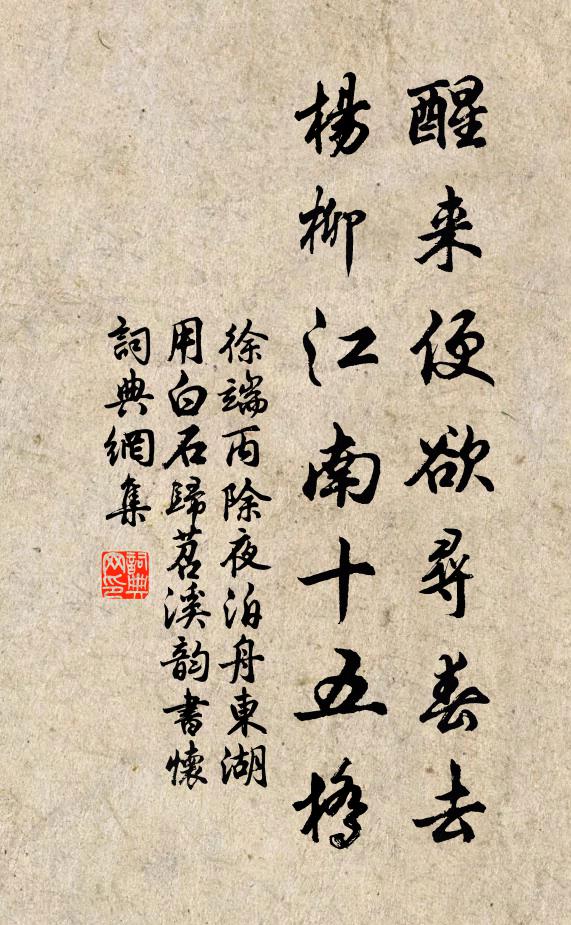 醒来便欲尋春去
楊柳江南十五橋
徐端丙除夜泊舟東湖
用白石歸苕溪韵書懷
詞典網集
詞典網印